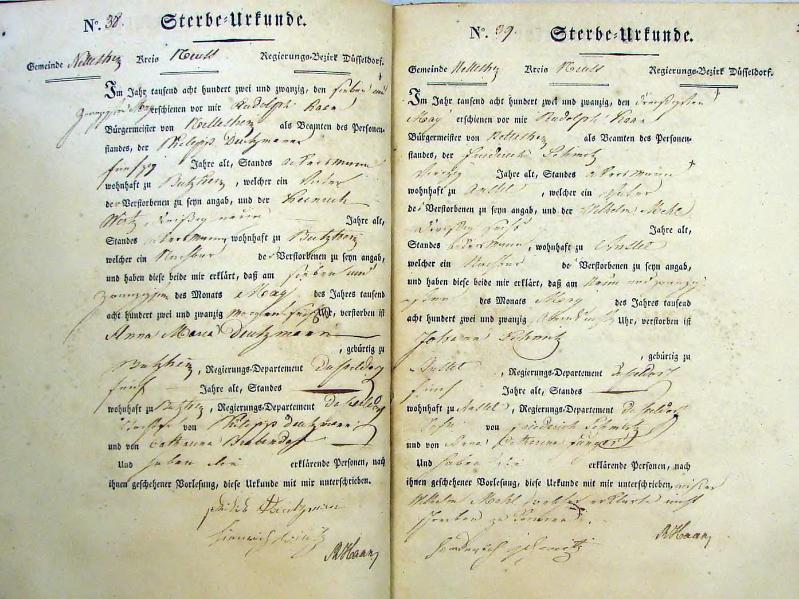 N.º 38. Sterbe-Urkunde.
Gemeinde Nettesheim Kreis Neuss Regierungs-Bezirk Düsseldorf.
Im Jahr tausend acht hundert zwei und zwanzig, den sieben und
zwanzigsten May erschienen vor mir Rudolph Haan
Bürgermeister von Nettesheim als Beamten des Personen-
standes, der Philipp Deutzmann
funfzig Jahre alt, Standes Ackersmann
wohnhaft zu Butzheim, welcher ein Vater
der Verstorbenen zu seyn angab, und der Heinrich
Wirtz, dreißig neun Jahre alt,
Standes Ackersmann wohnhaft zu Butzheim
welcher ein Nachbar der Verstorbenen zu seyn angab,
und haben diese beide mir erklärt, daß am sieben und
zwanzigsten des Monats May des Jahres tausend
acht hundert zwei und zwanzig morgens Uhr, verstorben ist
Anna Maria Deutzmann
, gebürtig zu
Butzheim, Regierungs-Departement Dusseldorf
fünf Jahre alt, Standes
wohnhaft zu Butzheim, Regierungs-Departement Dusseldorf
Tochter von Philipp Deutzmann
und von Catharina
Und haben die erklärende Personen, nach
ihnen geschehener Vorlesung, diese Urkunde mit mir unterschrieben.
Deutzman
RHaan
N.º 39. Sterbe-Urkunde.
Gemeinde Nettesheim Kreis Neuss Regierungs-Bezirk Düsseldorf.
Im Jahr tausend acht hundert zwei und zwanzig, den dreißigsten
May erschienen vor mir Rudolph Haan
Bürgermeister von Nettesheim als Beamten des Personen-
standes, der Friederich Schmitz
Jahre alt, Standes Ackersmann
wohnhaft zu Anstel, welcher ein Vater
des Verstorbenen zu seyn angab, und der Wilhelm Mehl
dreißig Jahre alt,
Standes Ackersmann, wohnhaft zu Anstel
welcher ein Nachbar des Verstorbenen zu seyn angab,
und haben diese beide mir erklärt, daß am neun und zwanzig
sten des Monats May des Jahres tausend
acht hundert zwei und zwanzig Abends Uhr, verstorben ist
Johann Schmitz
, gebürtig zu
Anstel, Regierungs-Departement Dusseldorf
fünf Jahre alt, Standes
wohnhaft zu Anstel, Regierungs-Departement Dusseldorf
Sohn von Friederich Schmitz
und von Anna Catharina
Und haben die erklärende Personen, nach
ihnen geschehener Vorlesung, diese Urkunde mit mir unterschrieben, außer
Wilhelm Mehl welcher erklarte nicht
schreiben zu können.
RHaan